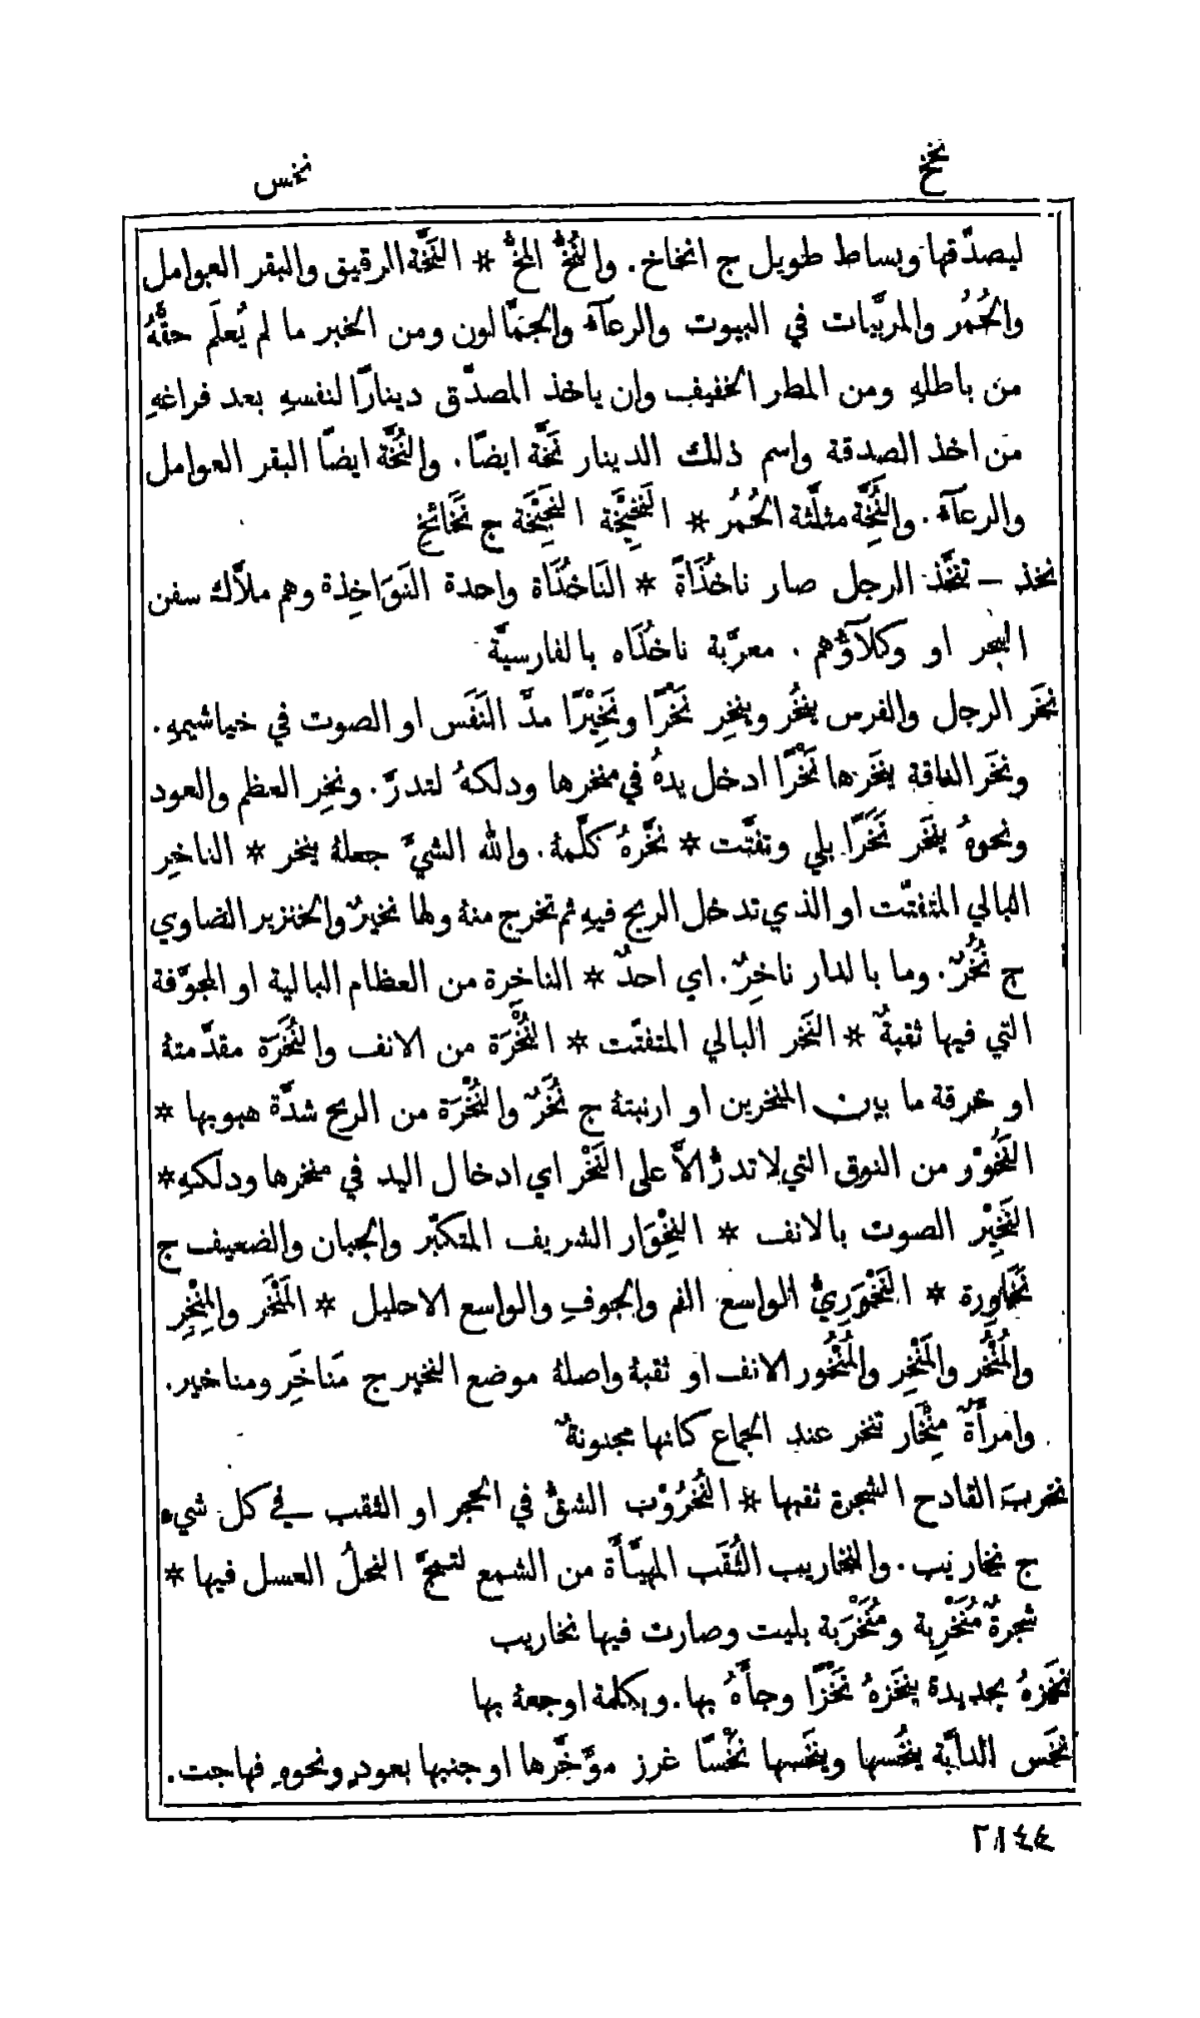 نخخ
نخس
ليصدّقها وبساط طويل ج انخاخ. والنُخُّ المخُّ * النَخَّة الرقيق والبقر العوامل
والحُمُر والمربّيات في البيوت والرعآة والجمَّالون ومن الخبر ما لم يُعلَم حقُّهُ
من باطلهِ ومن المطر الخفيف وان ياخذ المصدّق دينارًا لنفسهِ بعد فراغهِ
من اخذ الصدقة واسم ذلك الدينار نَخَّة ايضًا. والنُخَّة ايضًا البقر العوامل
والرعآة. والنَُِخَّة مثلَّثة الحُمُر * النَخِيْخَة النَجِيْخَة ج نَخَائخ
نخذ — تنخَّذ الرجل صار ناخُذَاةً * النَاخُذَاة واحدة النَوَاخِذة وهم ملاَّك سفن
البحر او وكلآؤُهم. معرَّبة ناخُذَاه بالفارسيَّة
نخَر الرجل والفرس ينخُر وينخِر نَخْرًا ونَخِيْرًا مدَّ النَفَس او الصوت في خياشيمهِ.
ونخَر الناقة ينخَرها نَخْرًا ادخل يدهُ في منخرها ودلكهُ لتدرَّ. ونخِر العظم والعود
ونحوهُ ينخَر نَخَرًا بلي وتفتَّت * نخَّرهُ كلَّمهُ. والله الشيَّ جعلهُ ينخر * الناخِر
البالي المتفتّت او الذي تدخل الريح فيهِ ثم تخرج منهُ ولها نخيرٌ والخنزير الضاوي
ج نُخُرٌ. وما بالدار ناخِرٌ. اي احدٌ * الناخِرة من العظام البالية او المجوَّفة
التي فيها ثقبةٌ * النَخِر البالي المتفتّت * النُخْرَة من الانف والنُخَرَة مقدَّمتهُ
او خرقة ما بين المنخرين او ارنبتهُ ج نُخَرٌ والنُخْرَة من الريح شدَّة هبوبها *
النَخُوْر من النوق التي لا تدرُّ الاَّ على النَخْر اي ادخال اليد في منخرها ودلكهِ *
النَخِيْر الصوت بالانف * النِخْوَار الشريف المتكبّر والجبان والضعيف ج
نَخَاوِرة * النَخْوَرِيُّ الواسع الفم والجوف والواسع الاحليل * المَنْخَر والمِنْخِر
والمُنْخُر والمَنْخِر والمُنْخُور الانف او ثقبهُ واصلهُ موضع النخير ج مَنَاخِر ومناخير.
وامرأَةٌ مِنْخَار تنخر عند الجماع كانها مجنونةٌ
نخربَ القادح الشجرة ثقبها * النُخْرُوْب الشقُّ في الحجر او الثقب في كل شيء
ج نخاريب. والنخاريب الثُقَب المهيَّأَة من الشمع لتمجَّ النحلُ العسل فيها *
شجرةٌ مُنَخْرِبة ومُنَخْرَبة بليت وصارت فيها نخاريب
نخَزهُ بحديدة ينخَزهُ نَخْزًا وجأَهُ بها. وبكلمة اوجعهُ بها
نخَس الدابَّة ينخُسها وينخَسها نَخْسًا غرز مؤَخَّرها او جنبها بعودٍ ونحوهِ فهاجت.
٢١٤٤